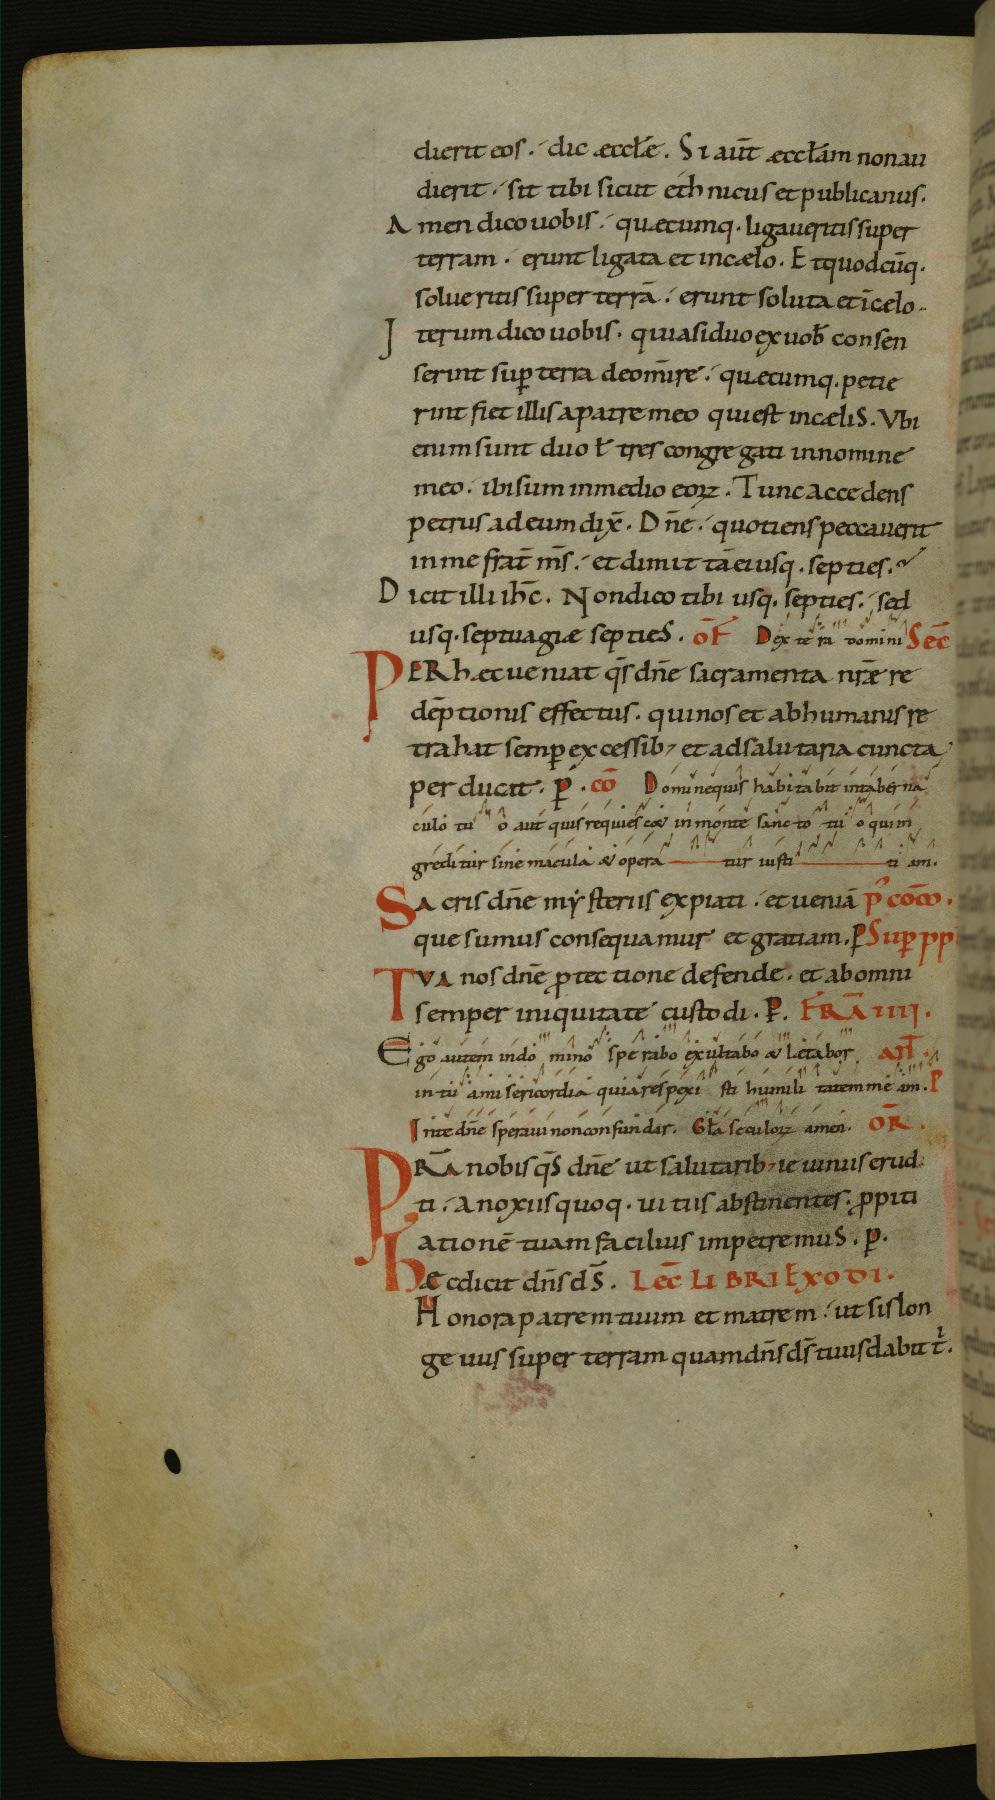 dierit eos. dic æccłe. Si aut̄ æccłam non au
dierit. sit tibi sicut ethnicus et publicanus.
Amen dico uobis. quæcumq. ligaueritis super
terram. erunt ligata et in cælo. Et quodcūq.
solueritis super terrā. erunt soluta et ī cælo.
Iterum dico uobis. quia si duo ex uob̄ consen
serint sup̄ terra de om̄i re. quæcumq. petie
rint fiet illis a patre meo qui est in cælis. Vbi
enim sunt duo ł tres congregati in nomine
meo. ibi sum in medio eoꝝ. Tunc accedens
petrus ad eum dix̄. Dn̄e. quotiens peccauerit
in me frat̄ m̄s. et dimittā ei usq. septies.
Dicit illi ih̄c. Non dico tibi usq. septies. sed
usq. septuagiæ septies. of̄ Dextera domini Sec̄
PER hæc ueniat q̄s dn̄e sacramenta nr̄æ re
dēptionis effectus. qui nos et ab humanis re
trahat semp̄ excessib; et ad salutaria cuncta
perducat. ꝑ. cō Domine quis habitabit in taberna
culo tuo aut quis requiescet in monte sancto tuo qui in
greditur sine macula et operatur iusticiam.
Sacris dn̄e mysteriis expiati. et ueniā p̄ com̄.
quesumus consequamur et gratiam. ꝑ Sup̄ pp
TVA nos dn̄e ꝓtectione defende. et ab omni
semper iniquitate custodi. P. FRĀ IIII.
Ego autem in domino sperabo exultabo et letabor an̄
in tua misericordia quia respexisti humilitatem meam. P
In te dn̄e speraui non confundar. Gła seculoꝝ amen. OR̄.
PRA nobis q̄s dn̄e ut salutarib; ieiuniis erudi
ti. A noxiis quoq. uitiis abstinentes. ꝓpiti
ationē tuam facilius impetremus. ꝑ.
Hæc dicit dn̄s ds̄. Lec̄ LIBRI EXODI.
Honora patrem tuum et matrem. ut sis lon
geuus super terram quam dn̄s ds̄ tuus dabit t̄.